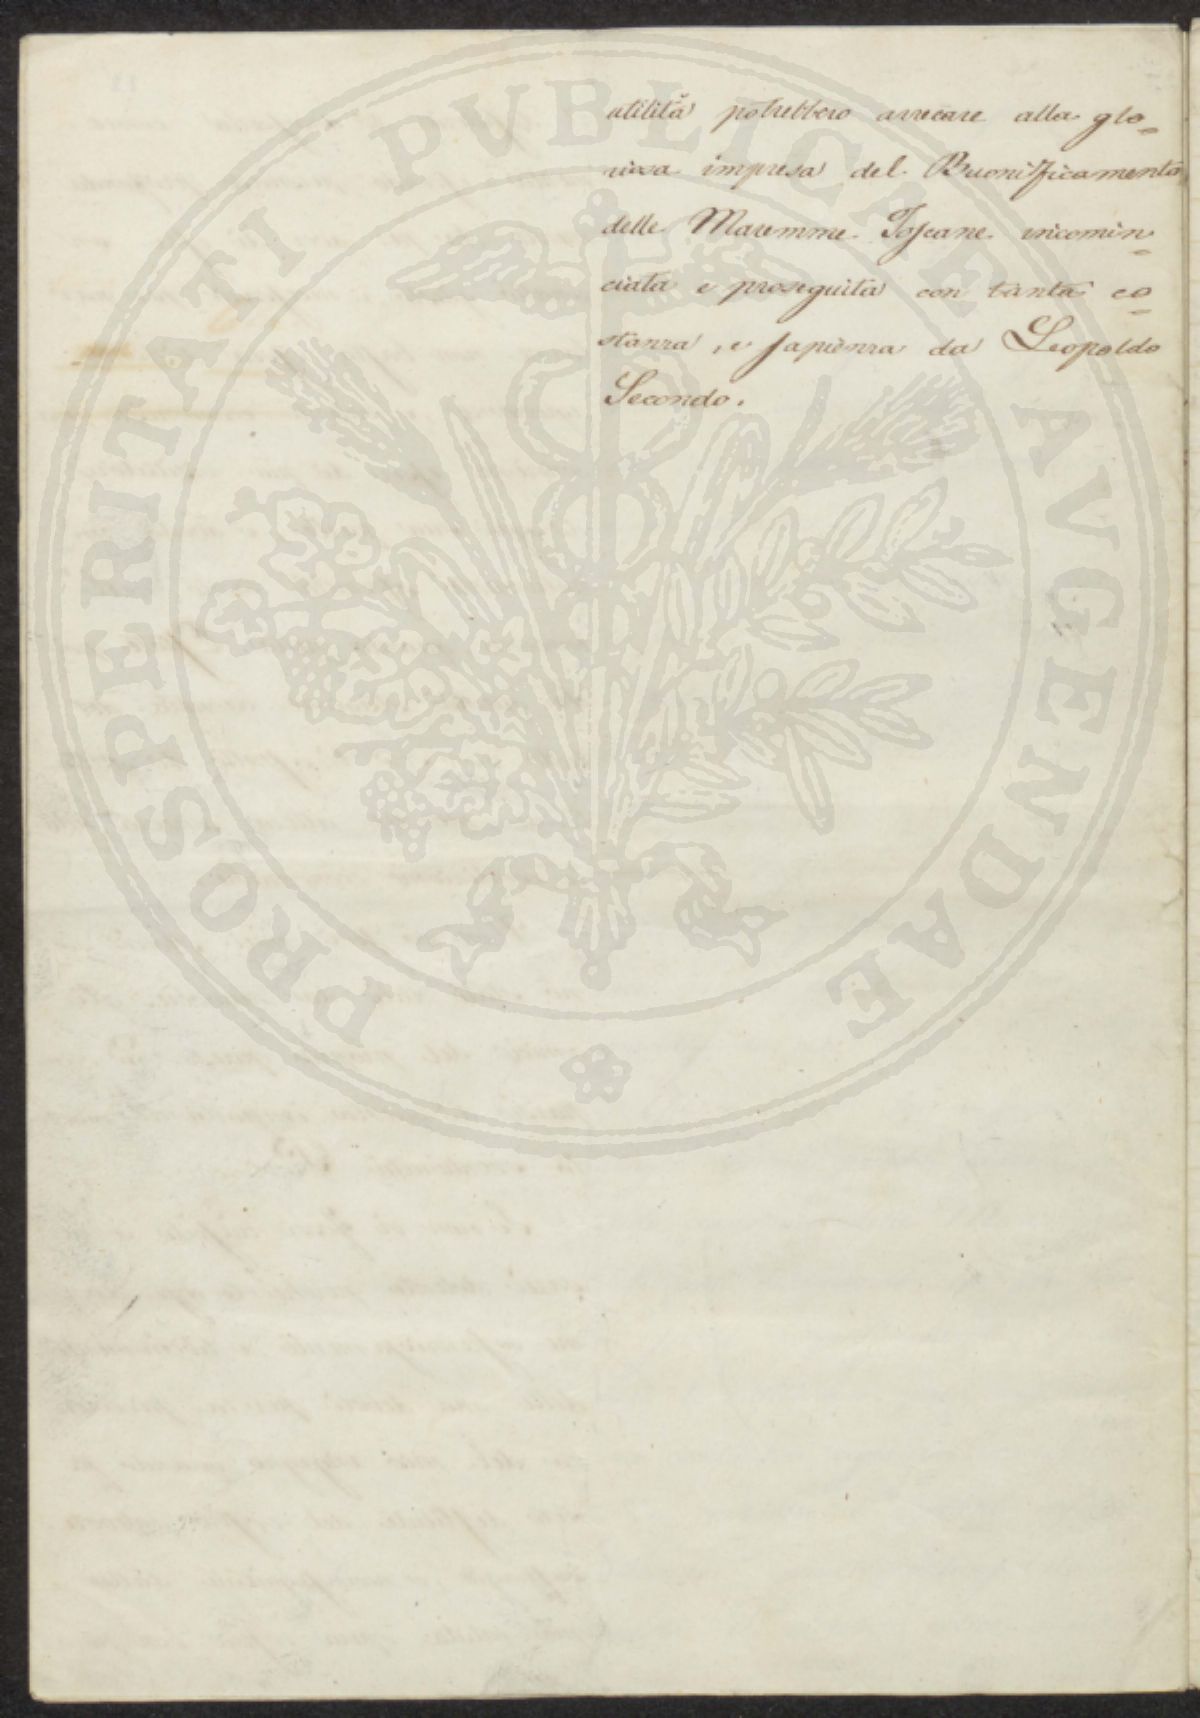 utilità potrebbero arrecare alla glo=
riosa impresa del Buonificamento
delle Maremme Toscane incomin=
ciata e proseguita con tanta co=
stanza, e sapienza da Leopoldo
Secondo.
PROSPERITATI PUBLICAE AVGENDAE